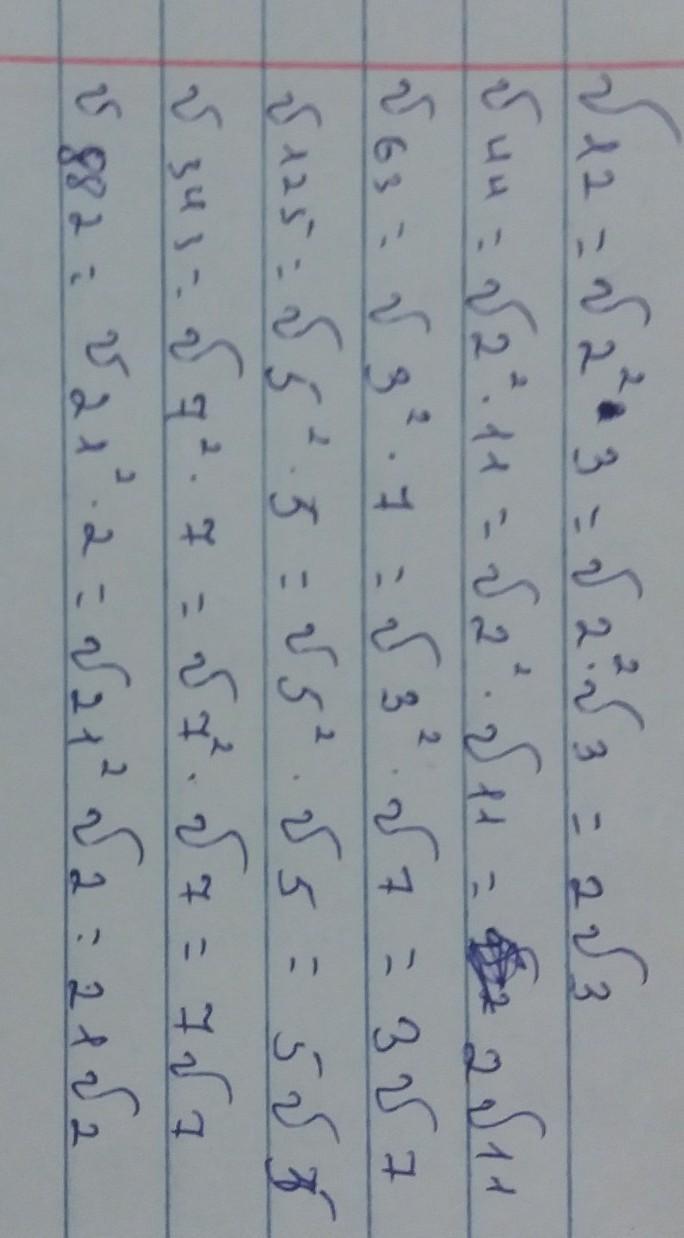 √12 = √2² · 3 = √2² · √3 = 2√3
√44 = √2² · 11 = √2² · √11 = 2√11
√63 = √3² · 7 = √3² · √7 = 3√7
√125 = √5² · 5 = √5² · √5 = 5√5
√343 = √7² · 7 = √7² · √7 = 7√7
√882 = √21² · 2 = √21² √2 = 21√2